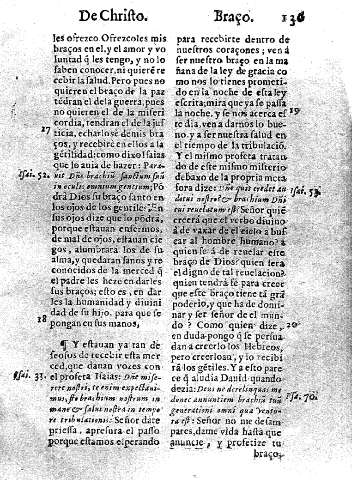 De Christo.
Braço. 136
les ofrezco. Ofrezcoles mis
braços en el, y el amor y vo
luntad q̃ les tengo, y no lo
saben conocer, ni quiere re
cebir la salud. Pero pues no
quieren el braço de la paz
tēdran el de la guerra, pues
no quieren el de la miseri
cordia, tendran el de la ju
27
sticia, echarlosè de mis bra
ços, y recebire en ellos a la
gētilidad: como dixo Isaias
que lo auia de hazer: Para-
Isai. 52.
uit Dñs brachiũ sanctum suũ
in oculis omnium gentium; Po
drà Dios su braço santo en
los ojos de los gentiles. En
sus ojos dize que lo podrà,
porque estauan enfermos,
de mal de ojos, estauan cie
gos, alumbrara los de su
alma, y quedaran sanos y re
conocidos de la merced q̃
el padre les hizo en darles
sus braços; esto es, en dar
les la humanidad y diuini
dad de su hijo. para que se
18
pongan en sus manos,
¶ Y estauan ya tan de
seosos de recebir esta mer
ced, que dauan vozes con
Isai. 33.
el profeta Isaias: Dñe mise-
rere nostri, te enim expectaui-
mus, esto brachium nostrum in
mane & salus nostra in tempo
re tribulationis: Señor date
priessa, apresura el passo
porque estamos esperando
para recebirte dentro de
nuestros coraçones; ven á
ser nuestro braço en la ma
ñana de la ley de gracia co
mo nos lo tienes prometi-
do en la noche de esta ley
escrita; mira que ya se passa
19
la noche, y se nos acerca es
te dia, ven a darnos lo bue-
no, y a ser nuestra salud en
el tiempo de la tribulaciõ.
Y el mismo profeta tratan
do de este mismo misterio
debaxo de la propria meta
Isai. 53.
fora dize: Dñe quis credet au
ditui nostro? & brachium Dñi
cui reuelatum est? Señor quiē
creerà que el verbo diuino
à de vaxar de el cielo a bus
car al hombre humano? a
quien se à de reuelar este
braço de Dios? quien sera
el digno de tal reuelacion?
quien tendrà fè para creer
que este braço tiene tã grã
poderio, y que ha de domi-
nar y ser señor de el mun-
20
do? Como quien dize,
en duda pongo q̃ se persua
dan a creerlo los Hebreos,
pero creerloan, y lo recibi
rã los gētiles. Y a esto pare
ce q̃ aludia Dauid quando
Psa. 70.
dezia: Deus ne derelinquas me
donec annuntiem brachiũ tuũ
generationi omni qua ventu
ra est: Señor no me desam-
pares, dame vida hasta que
anuncie, y profetize tu
braço,